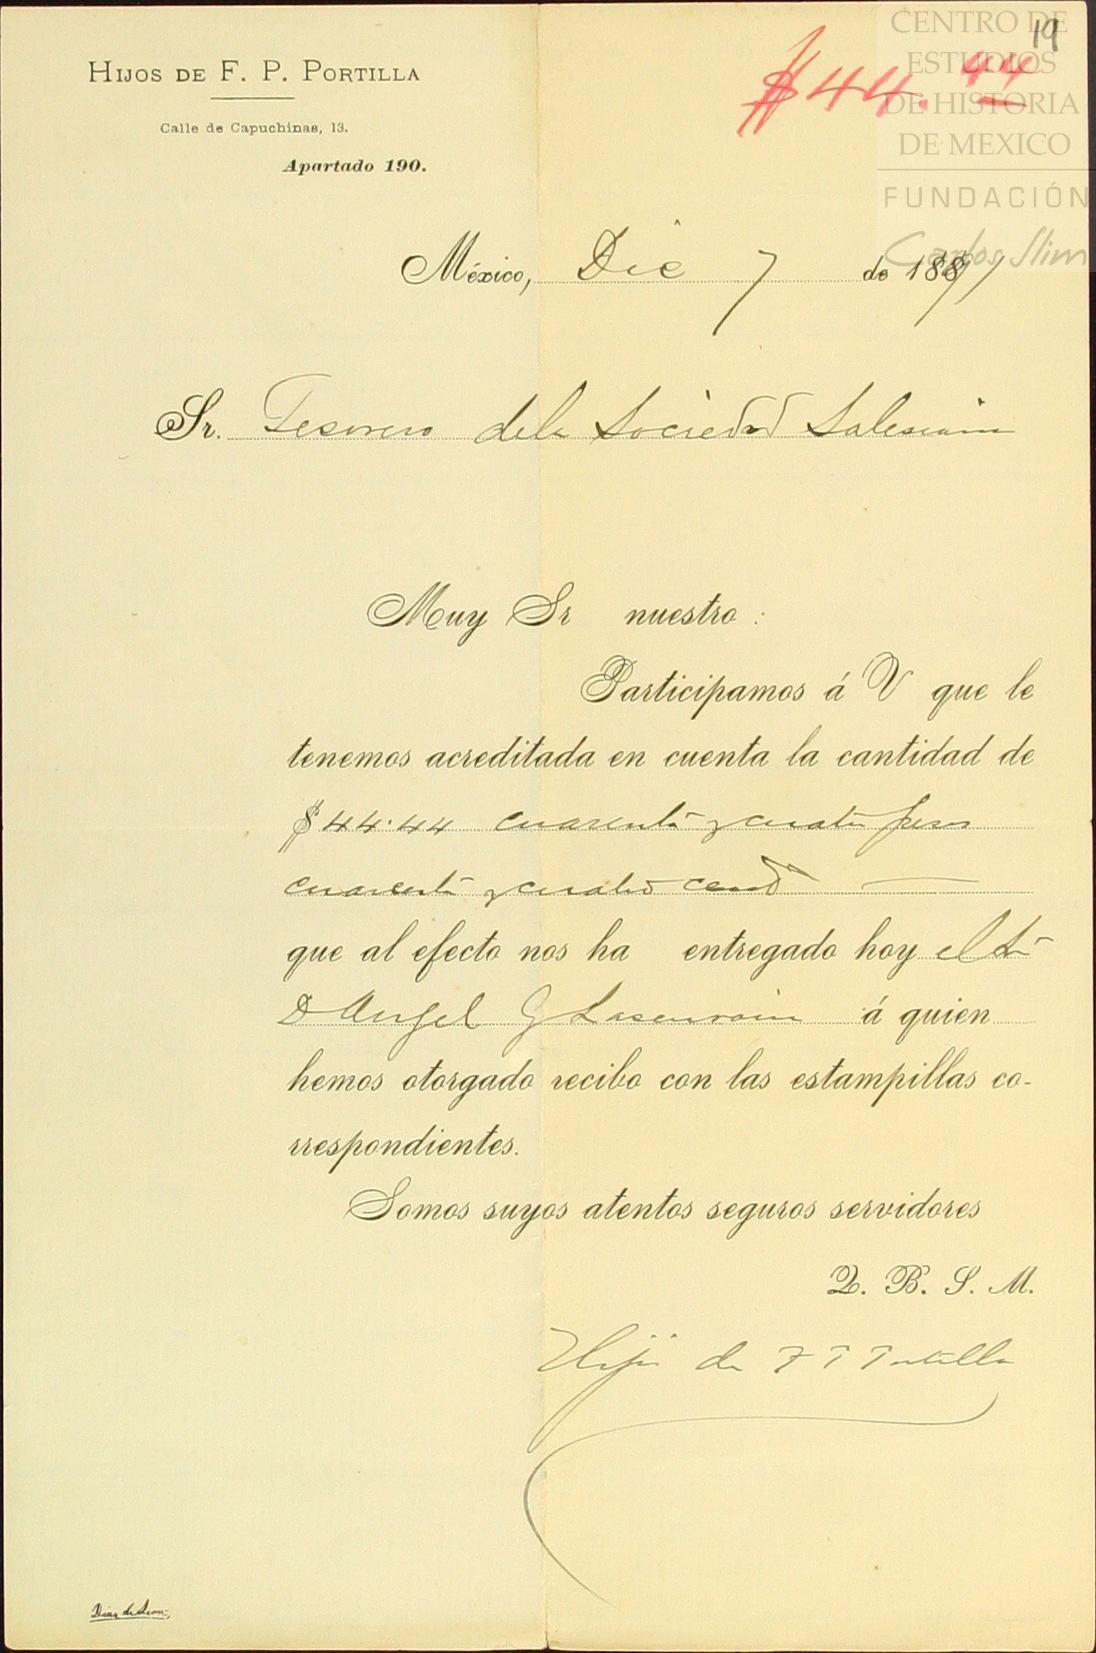 CENTRO DE
ESTUDIOS
DE HISTORIA
DE MEXICO
FUNDACIÓN
Carlos Slim
19
$44.44
HIJOS DE F. P. PORTILLA
Calle de Capuchinas, 13.
Apartado 190.
México, Dic 7 de 1891
Sr. Tesorero dela Sociedad Salesiana
Muy Sr nuestro :
Participamos á V que le
tenemos acreditada en cuenta la cantidad de
$44.44 cuarenta y cuatro pesos
cuarenta y cuatro cents
que al efecto nos ha entregado hoy el Sr
D Angel G Lascurain á quien
hemos otorgado recibo con las estampillas co-
rrespondientes.
Somos suyos atentos seguros servidores
Q. B. S. M.
Hijos de F P Portilla
Diaz de Leon